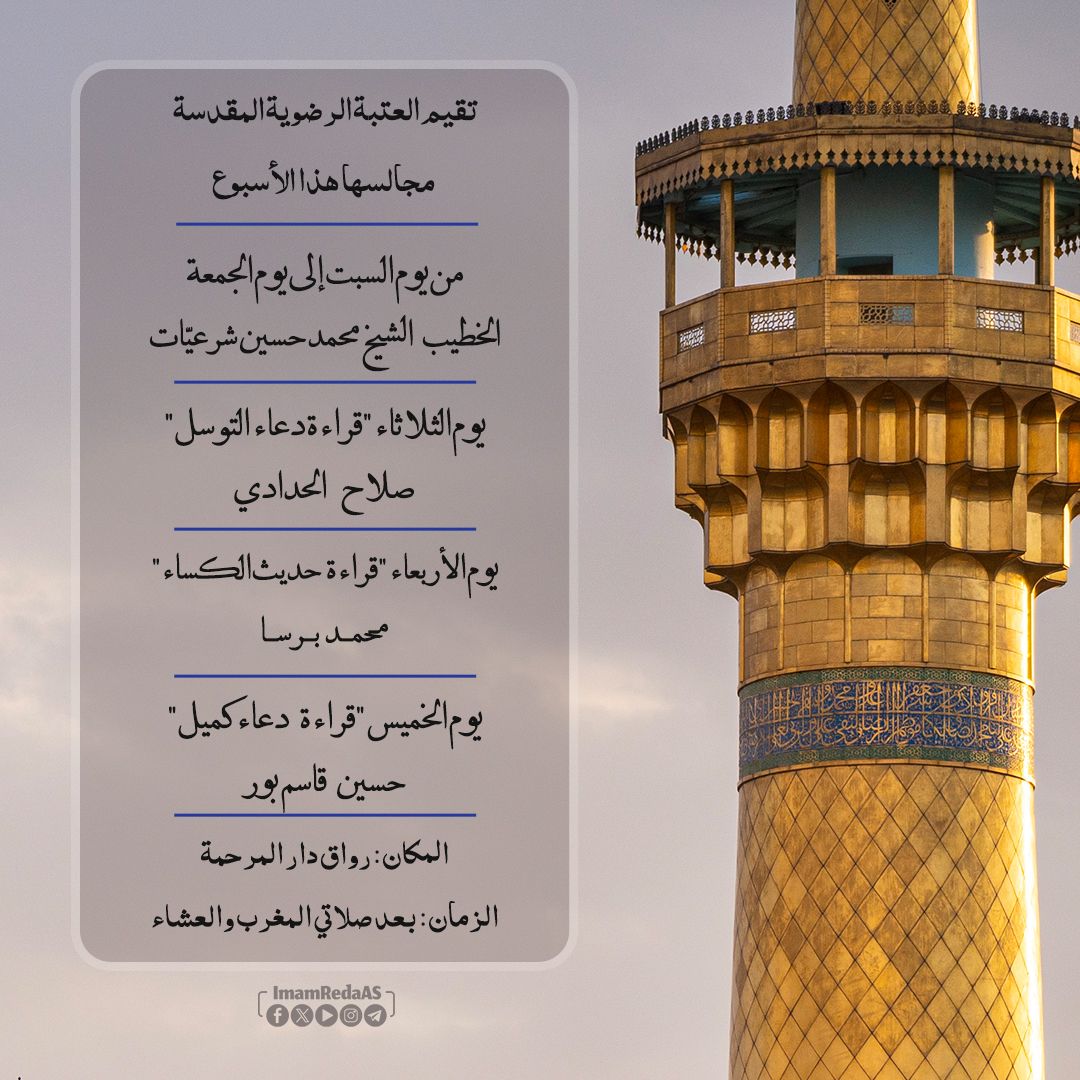 تقيم العتبة الرضوية المقدسة
مجالسها هذا الأسبوع
من يوم السبت إلى يوم الجمعة
الخطيب الشيخ محمد حسين شرعيّات
يوم الثلاثاء "قراءة دعاء التوسل"
صلاح الحدادي
يوم الأربعاء "قراءة حديث الكساء"
محمد برسا
يوم الخميس "قراءة دعاء كميل"
حسين قاسم بور
المكان: رواق دار المرحمة
الزمان: بعد صلاتي المغرب والعشاء
ImamRedaAS